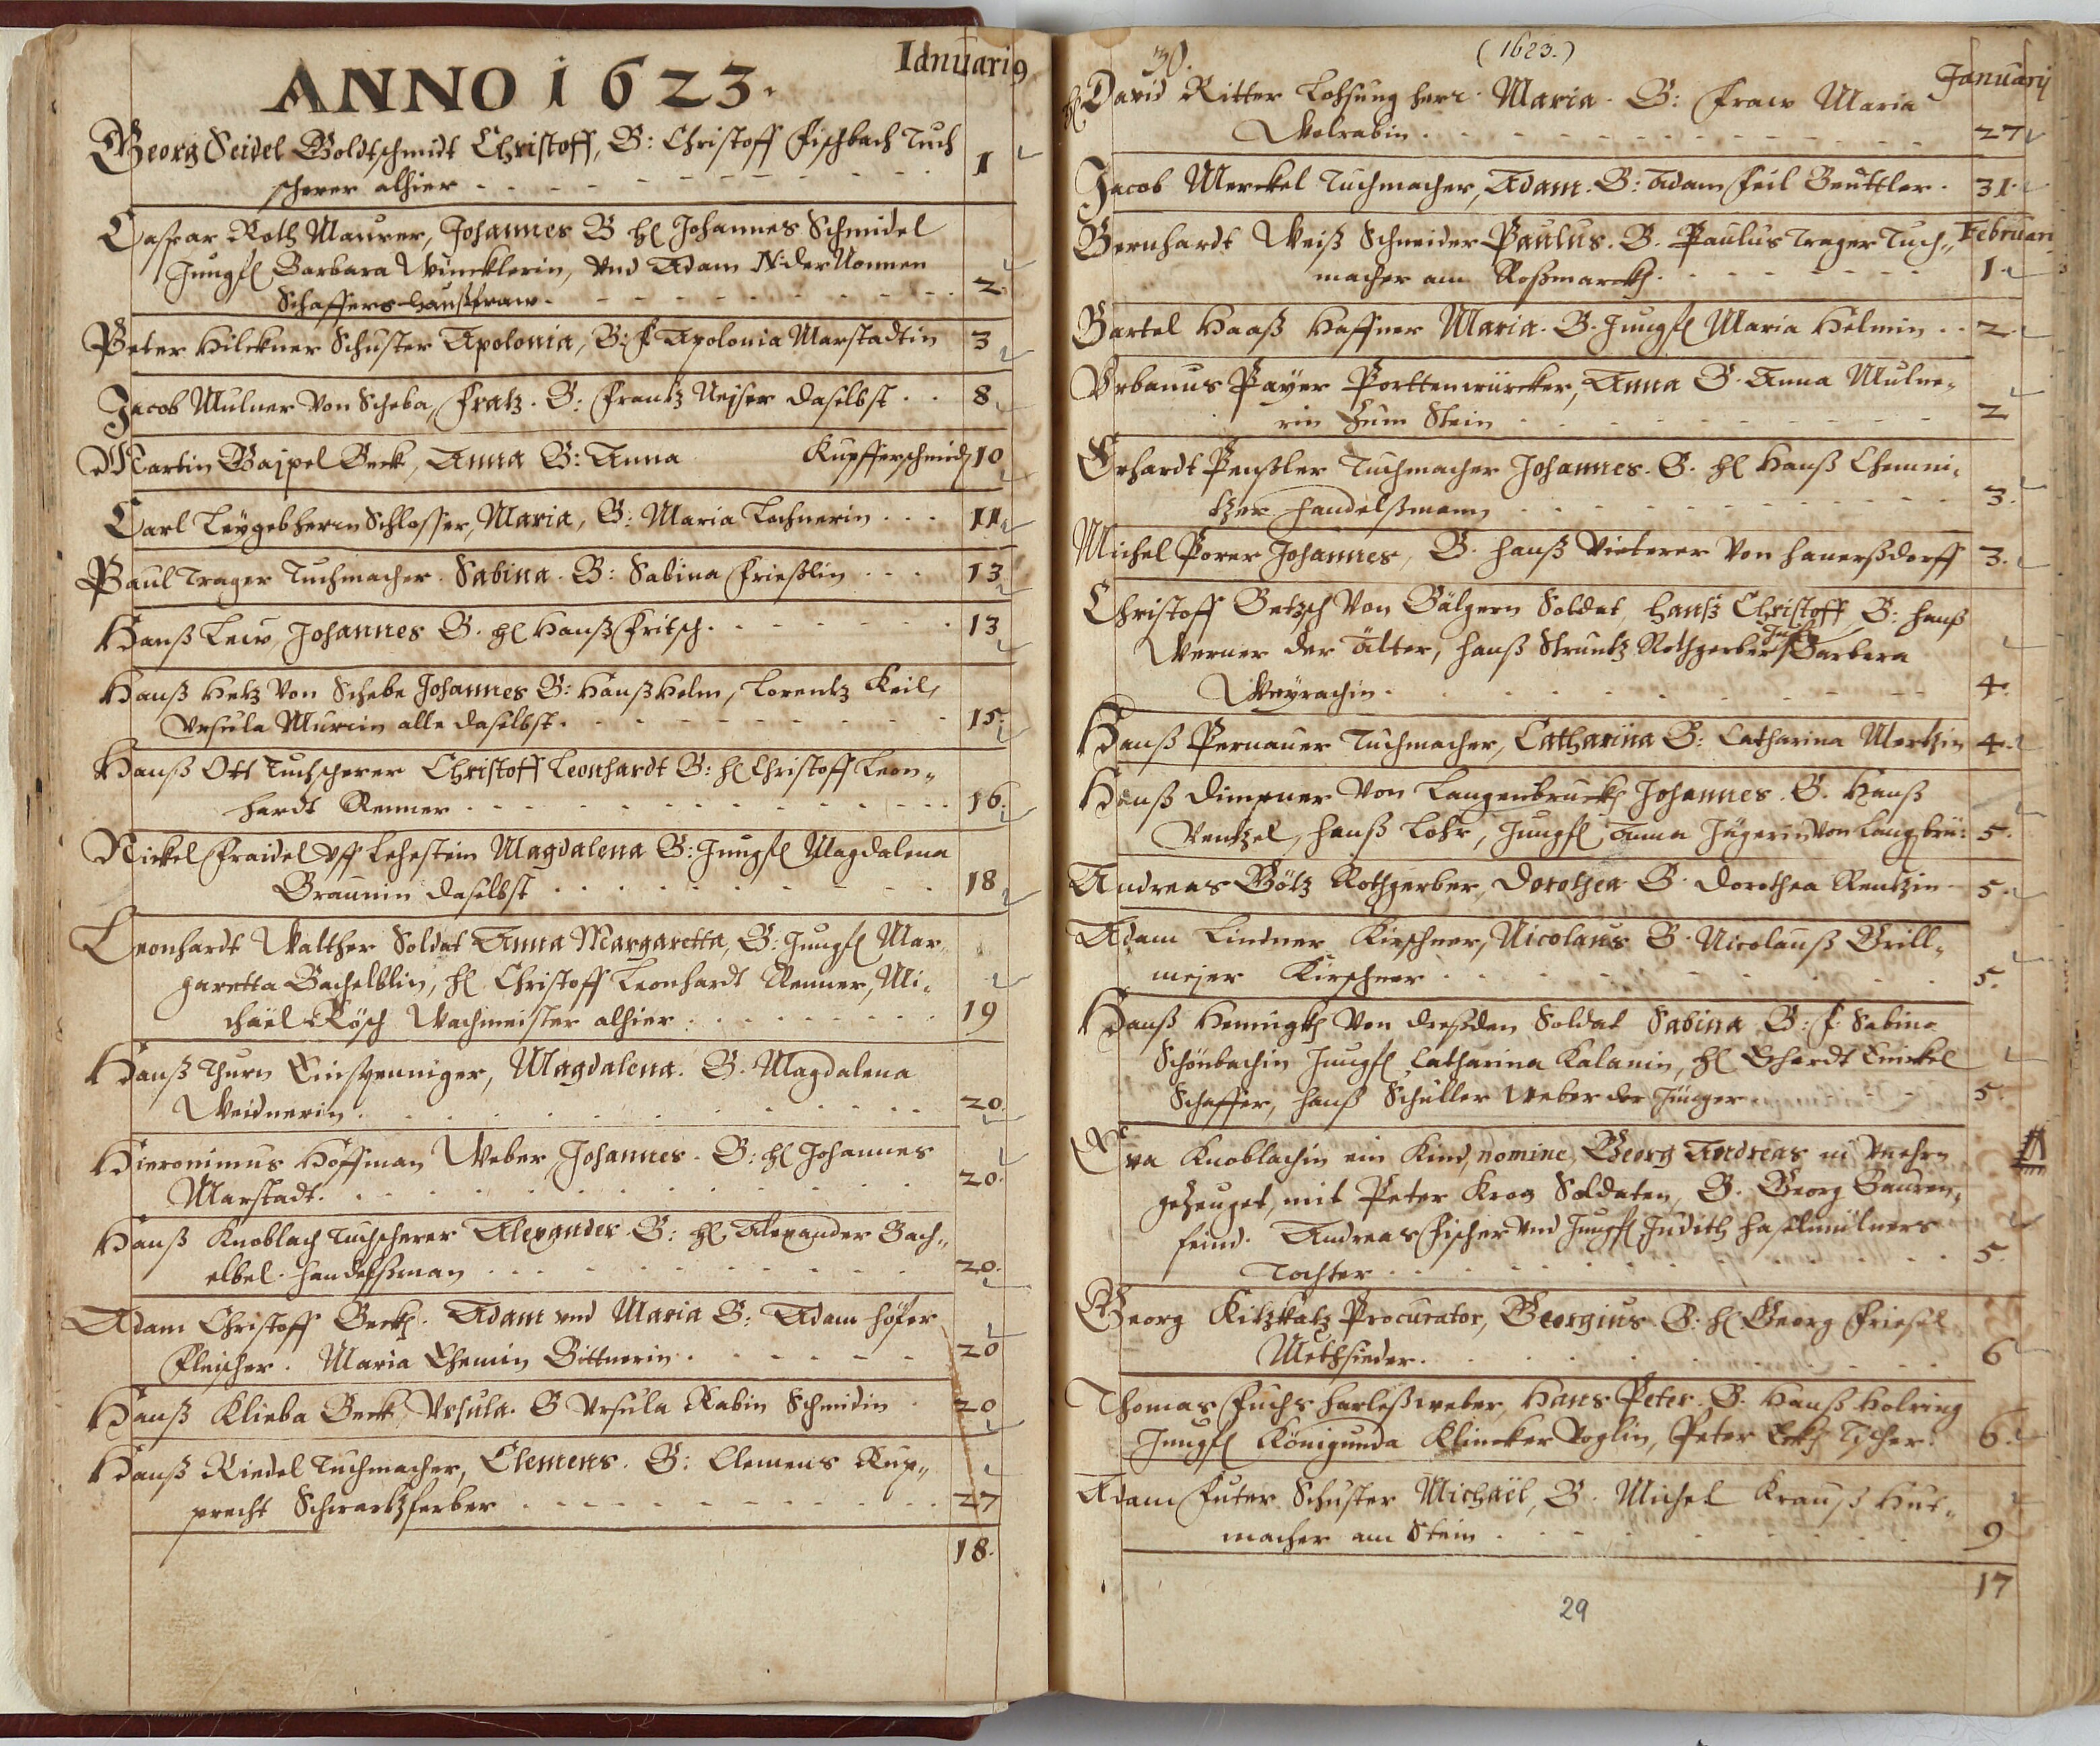 ANNO 1623.
Ianuari9
Georg Seidel Goldtschmidt Christoff, G: Christoff Fischbach Tuch
scherer alhier 1
Caspar Roth Maurer, Johannes G hl Johannes Schmidel
Jungfl Barbara Wincklerin, vnd Adam N: der Nonnen
Schaffers haußfraw 2.
Peter Hilckner Schuster Apolonia, G: F Apolonia Marstadtin 3
Jacob Mulner von Scheba, Fratz. G: Frantz daselbst 8
Martin Beck, Anna G: Anna Kupfferschmid 10
Carl Leygebherin Schlosser, Maria, G: Maria Lochnerin 11
Paul Trager Tuchmacher. Sabina. G: Sabina Frießlin 13
Hanß Lew, Johannes G. hl Hanß Fritsch 13
Hanß Hetz von Scheba Johannes G: Hanß Helm, Lorentz Keil,
Vrsula Murrin alle daselbst. 15.
Hanß Ott Tuchscherer Christoff Leonhardt G: hl Christoff Leon„
hardt Renner 16.
Nickel Fraidel vff Lehestein Magdalena G: Jungfl Magdalena
Braunin daselbst 18
Leonhardt Walther Soldat Anna Margaretta, G: Jungfl Mar„
garetta Bachelblin, hl Christoff Leonhardt Renner, Mi„
chaël Rösch Wachmeister alhier 19
Hanß Thurn Einspenniger, Magdalena. G. Magdalena
Weidnerin 20.
Hieronimus Hoffman Weber Johannes. G: hl Johannes
Marstadt. 20.
Hanß Knoblach Tuchscherer Alexander. G: hl Alexander Bach„
elbel. Handelßman 20.
Adam Christoff Beckh. Adam vnd Maria G: Adam Höfer
Fleischer. Maria Bittnerin 20
Hanß Klieba Beck, Vrsula. G Vrsula Rabin Schmidin 20
Hanß Riedel Tuchmacher, Clemens. G: Clemens Rup„
precht Schwartzferber 27
18.
30.
(1623.)
Januarij
hl David Ritter Losung herr. Maria. G: Fraw Maria
Wolrabin 27
Jacob Merckel Tuchmacher, Adam. G: Adam Feil Beuttler. 31.
Bernhardt Weiß Schneider Paulus. G. Paulus Trager Tuch„ Februari
macher am Roßmarckh. 1.
Bartel Haaß Haffner Maria. G. Jungfl Maria Helmin 2.
Vrbanus Payer Porttenwürcker, Anna G. Anna Mulne„
rin Zum Stein 2
Erhardt Penßler Tuchmacher Johannes. G. hl Hanß Chemni„
tzer Handelßmann 3.
Michel Porer Johannes, G. Hanß Vieterer von Hauerßdorff 3.
Christoff Betzsch von Bälgern Soldat, Hanß Christoff, G: Hanß
Werner der älter, Hanß Struntz Rothgerber, Jungfl Barbara
Weyrachin. 4.
Hanß Pernauer Tuchmacher, Catharina G: Catharina Mertzin 4.
Hanß Dimpner von Langenbruckh Johannes. G. Hanß
Wentzel, Hanß Lohr, Jungfl Anna Jägerin von Langbrü: 5.
Andreas Götz Rothgerber, Dorothea G. Dorothea Rentzin 5.
Adam Lindner Kirschner, Nicolaus G. Nicolauß Grill„
meier Kirschner 5.
Hanß Hennigkh von Dreßden Soldat Sabina G: F: Sabina
Schönbachin Jungfl Catharina Kalanin, hl Erhardt Einckel
Schaffer, Hanß Schuller Weber der Jünger 5.
Eva Knoblachin ein Kind, nomine, Georg Andreas in Vnehrn
gezeuget, mit Peter Krog Soldaten, G. Georg Bauren„
feind. Andreas Fischer vnd Jungfl Judith Haselmülners
Tochter 5.
Georg Kitzkatz Procurator, Georgius G: hl Georg Friesel
Methsieder. 6
Thomas Fuchs Harleßweber, Hans Peter. G. Hanß Holring
Jungfl Königunda Klincker Voglin, Peter Eckh Ticher. 6.
Adam Futer Schuster Michaël, G. Michel Krauß Hut„
macher am Stein 9
17
29